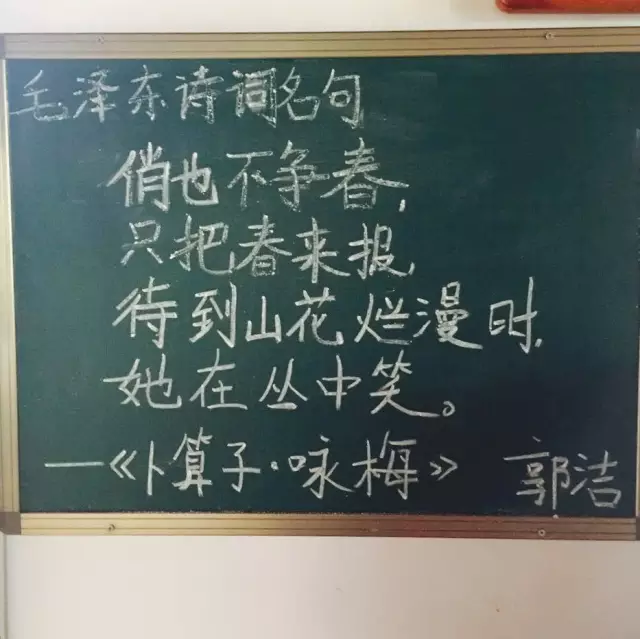 毛泽东诗词名句
俏也不争春,
只把春来报,
待到山花烂漫时,
她在丛中笑。
—《卜算子·咏梅》 郭洁